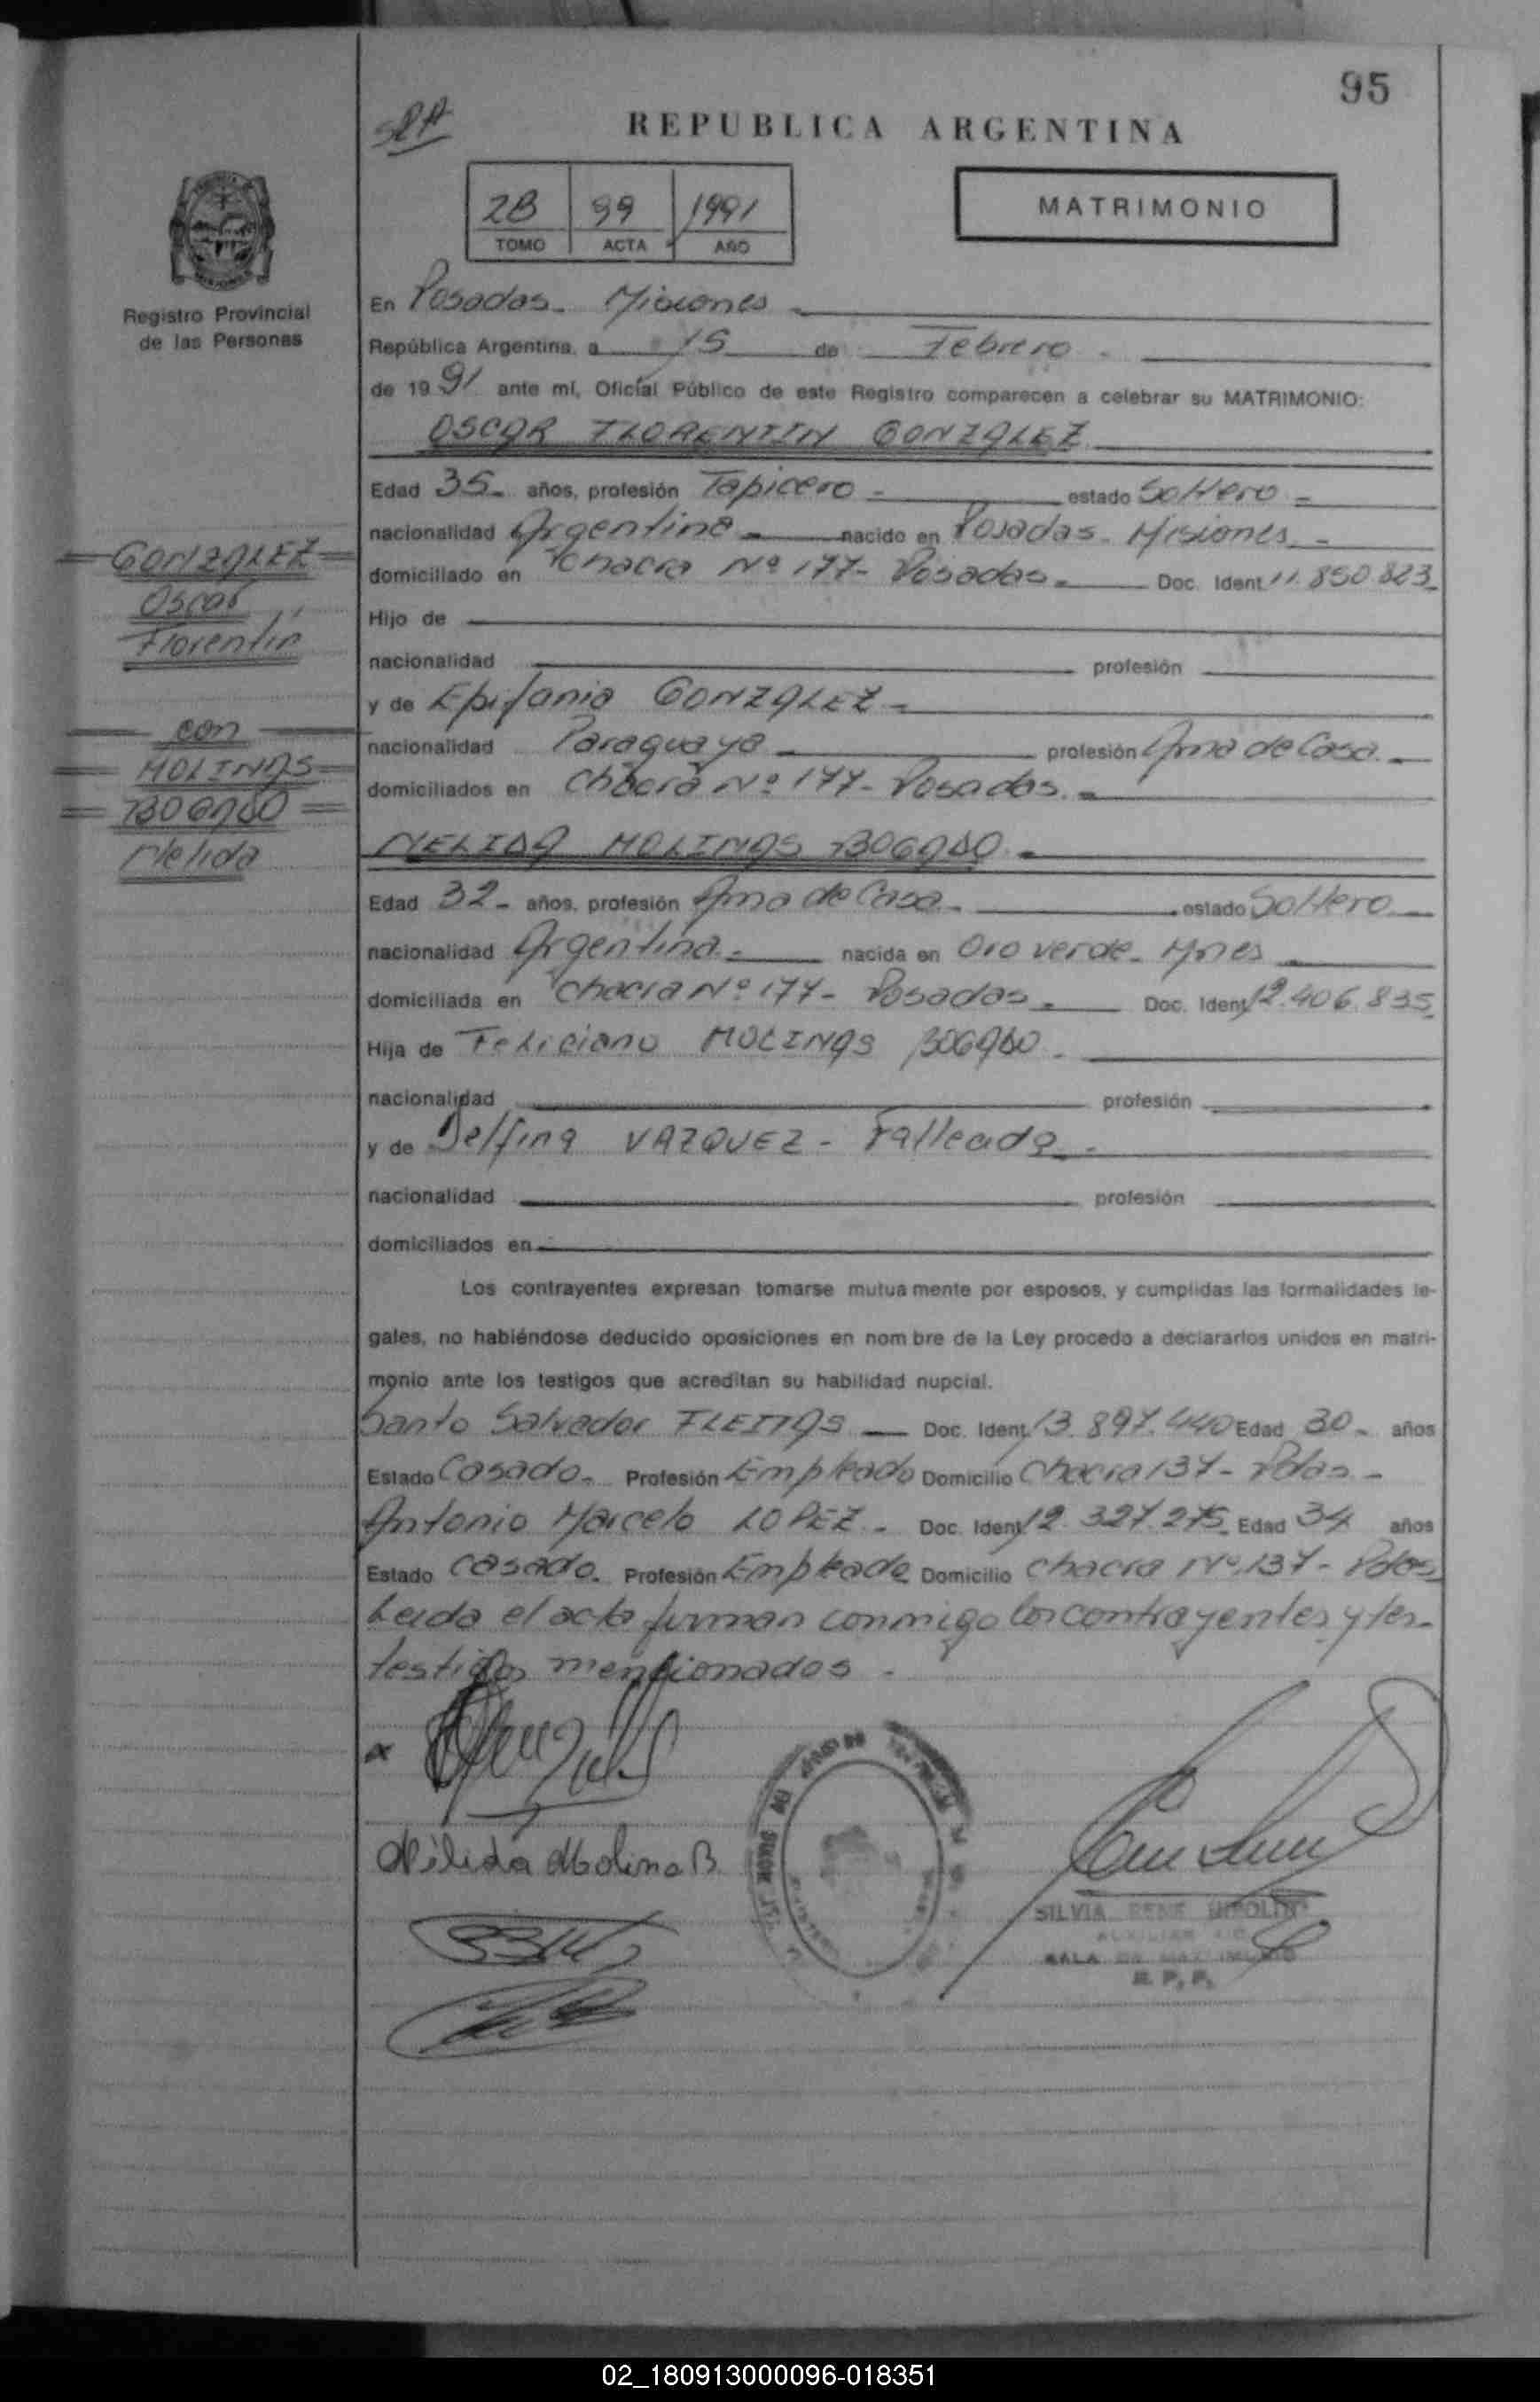 95
REPUBLICA ARGENTINA
2B 99 1991
TOMO ACTA AÑO
MATRIMONIO
Registro Provincial
de las Personas
En Posadas - Misiones
República Argentina, a 15 de Febrero
de 1991 ante mí, Oficial Público de este Registro comparecen a celebrar su MATRIMONIO:
OSCAR FLORENTIN GONZALEZ
Edad 35 - años, profesión Tapicero - estado Soltero -
nacionalidad Argentina - nacido en Posadas - Misiones -
domiciliado en Chacra Nº 177 - Posadas - Doc. Ident. 11.850.823
Hijo de
nacionalidad profesión
y de Epifania GONZALEZ -
nacionalidad Paraguaya - profesión Ama de Casa -
domiciliados en Chacra Nº 177 - Posadas -
GONZALEZ
Oscar
Florentin
con
MOLINAS
BOGADO
Nelida
NELIDA MOLINAS BOGADO -
Edad 32 - años, profesión Ama de Casa - estado Soltero
nacionalidad Argentina - nacida en Oro verde - Mnes
domiciliada en Chacra Nº 177 - Posadas - Doc. Ident. 12.406.835
Hija de Feliciano MOLINAS BOGADO -
nacionalidad profesión
y de Delfina VAZQUEZ - Fallecida -
nacionalidad profesión
domiciliados en
Los contrayentes expresan tomarse mutuamente por esposos, y cumplidas las formalidades le-
gales, no habiéndose deducido oposiciones en nombre de la Ley procedo a declararlos unidos en matri-
monio ante los testigos que acreditan su habilidad nupcial.
Santo Salvador FLEITAS - Doc. Ident. 13.897.440 Edad 30 - años
Estado Casado - Profesión Empleado Domicilio Chacra 137 - Pdas -
Antonio Marcelo LOPEZ - Doc. Ident. 12.327.275 Edad 34 años
Estado Casado - Profesión Empleado Domicilio Chacra Nº 137 - Pdas
Leida el acta firman conmigo los contrayentes y tes-
testigos mencionados -
Nélida Molina B
SILVIA RENE
SALA DE MATRIMONIO
R. P. P.
02_180913000096-018351